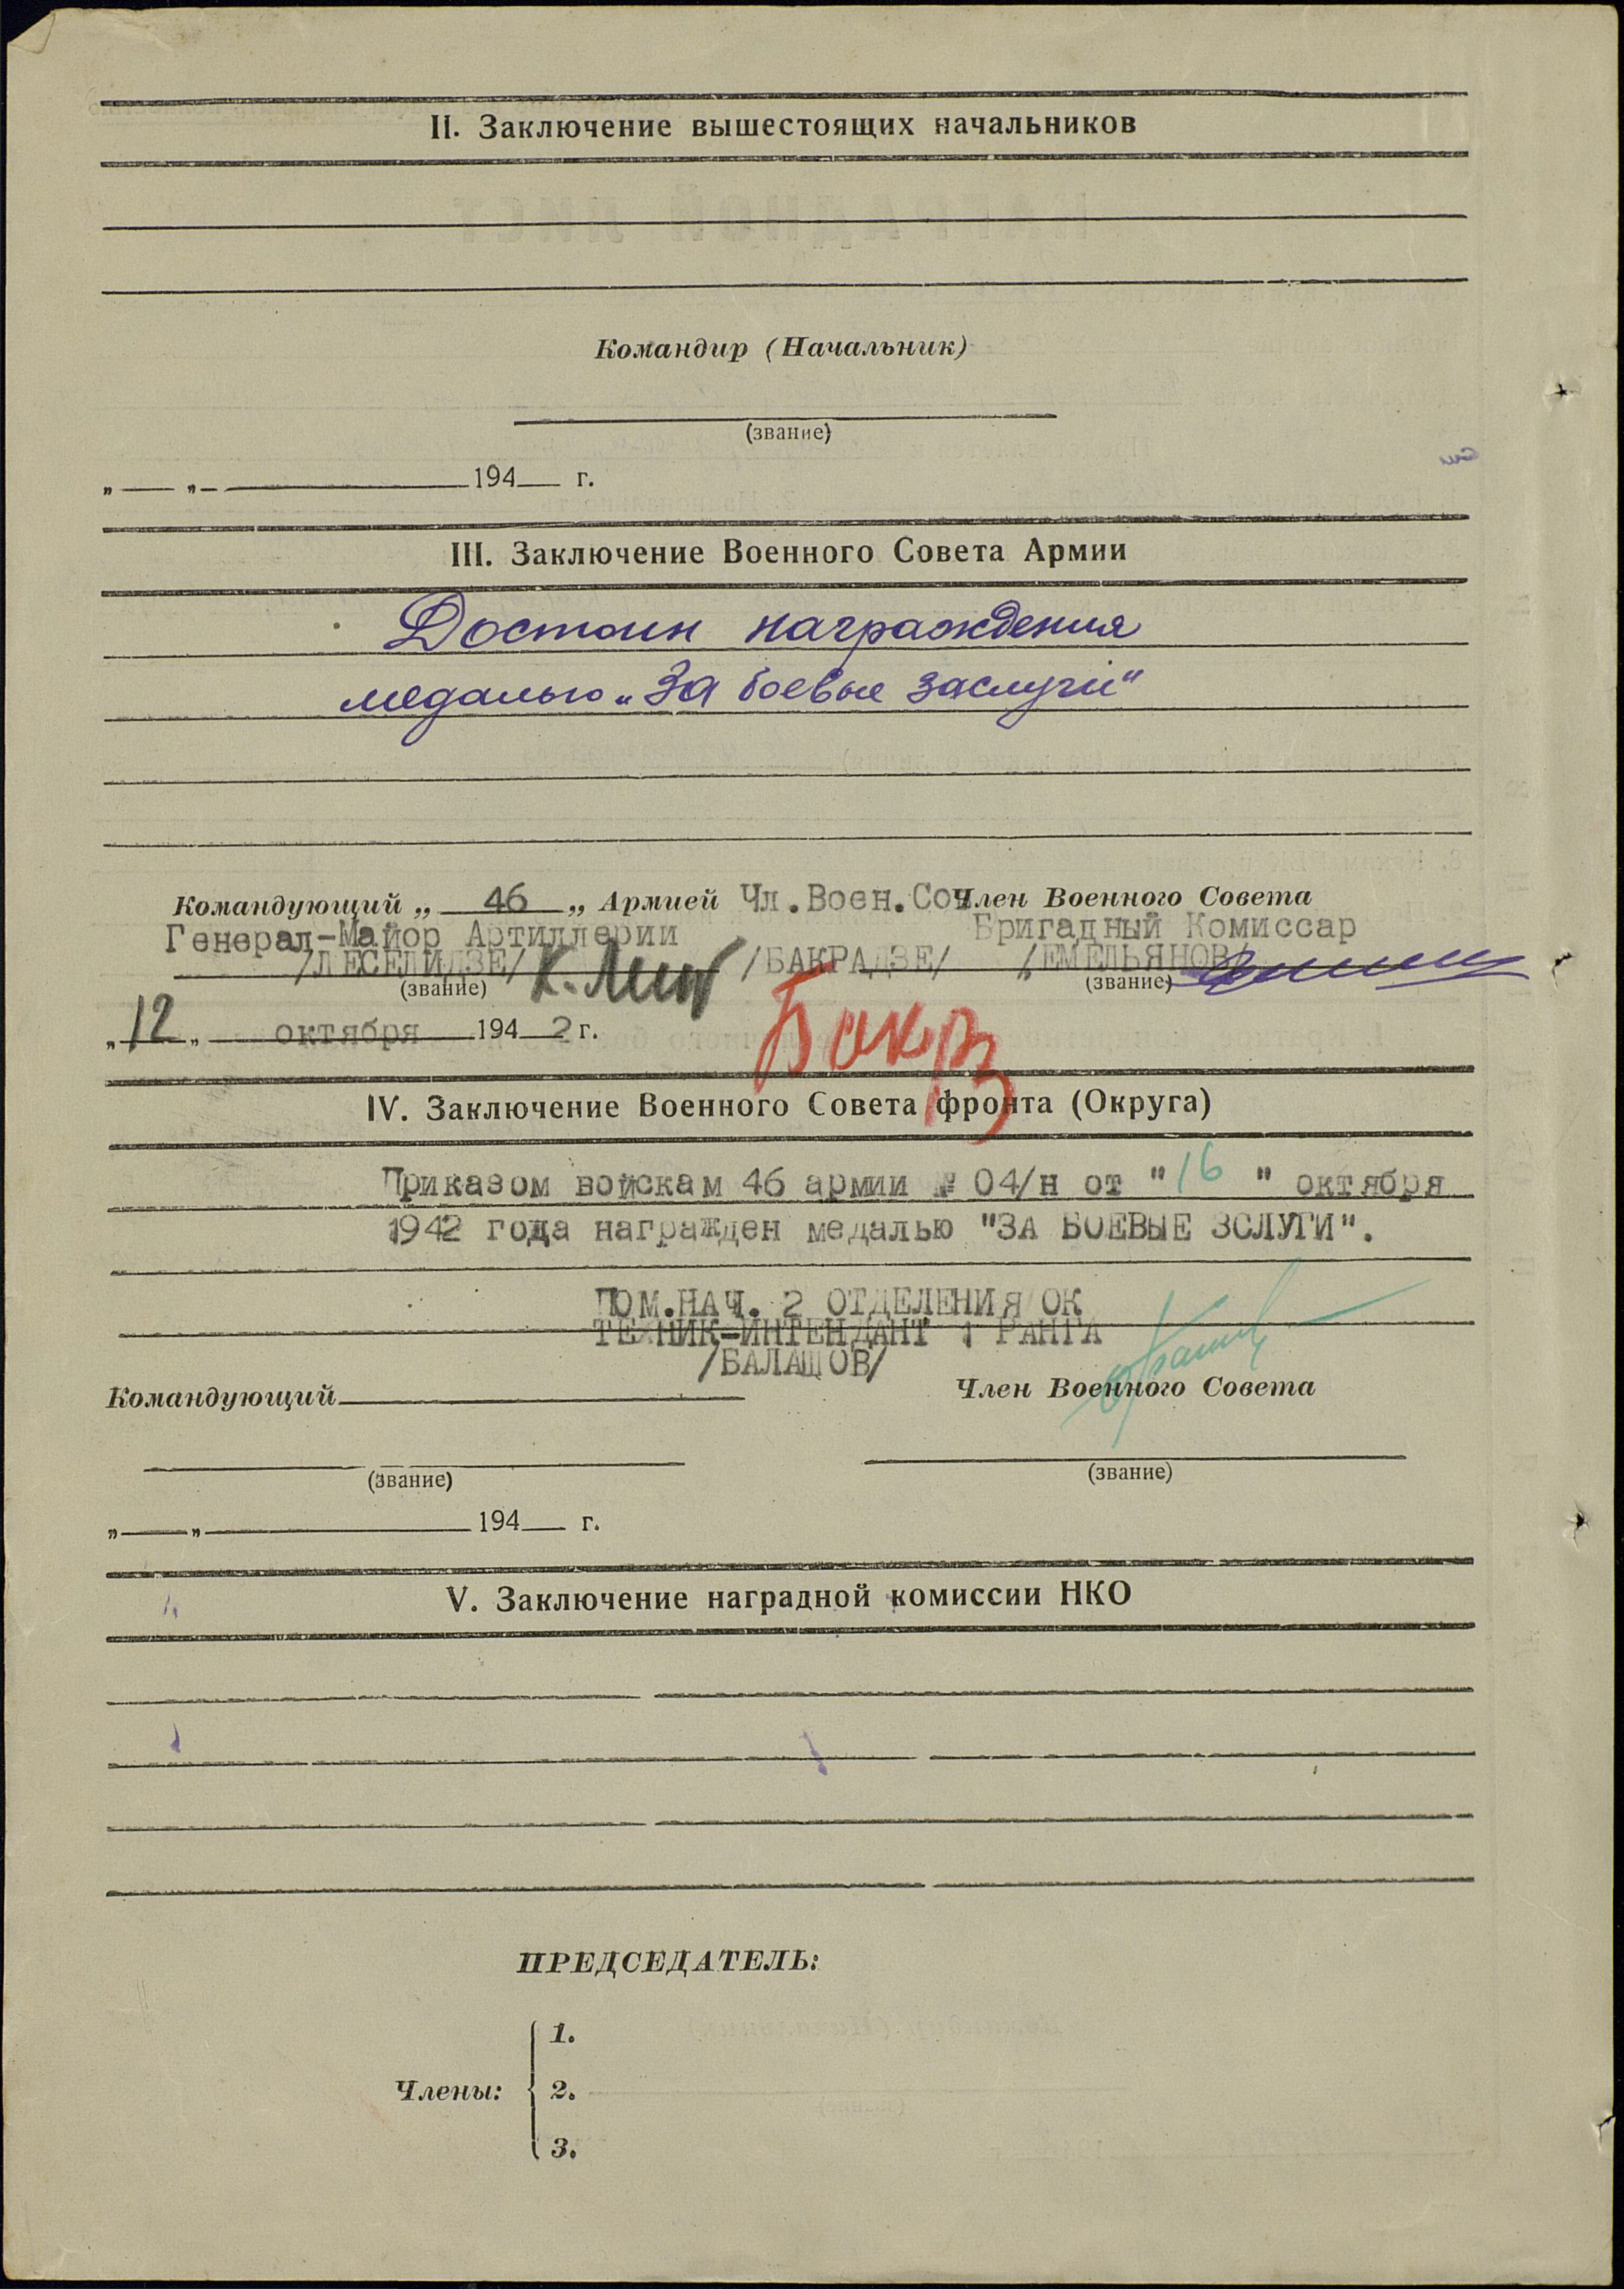 II. Заключение вышестоящих начальников
Командир (Начальник)
(звание)
„ „ 194 г.
III. Заключение Военного Совета Армии
Достоин награждения
медалью „За боевые заслуги“
Командующий „ 46 „ Армией Чл.Воен.Сов Член Военного Совета
Генерал-Майор Артиллерии Бригадный Комиссар
/ЛЕСЕЛИДЗЕ/ /БАКРАДЗЕ/ /ЕМЕЛЬЯНОВ/
(звание) (звание)
„12„ октября 1942 г.
IV. Заключение Военного Совета фронта (Округа)
Приказом войскам 46 армии № 04/н от "16 " октября
1942 года награжден медалью "ЗА БОЕВЫЕ ЗСЛУГИ".
ПОМ.НАЧ. 2 ОТДЕЛЕНИЯ ОК
ТЕХНИК-ИНТЕНДАНТ 1 РАНГА
/БАЛАШОВ/
Командующий Член Военного Совета
(звание) (звание)
„ „ 194 г.
V. Заключение наградной комиссии НКО
ПРЕДСЕДАТЕЛЬ:
1.
Члены: 2.
3.